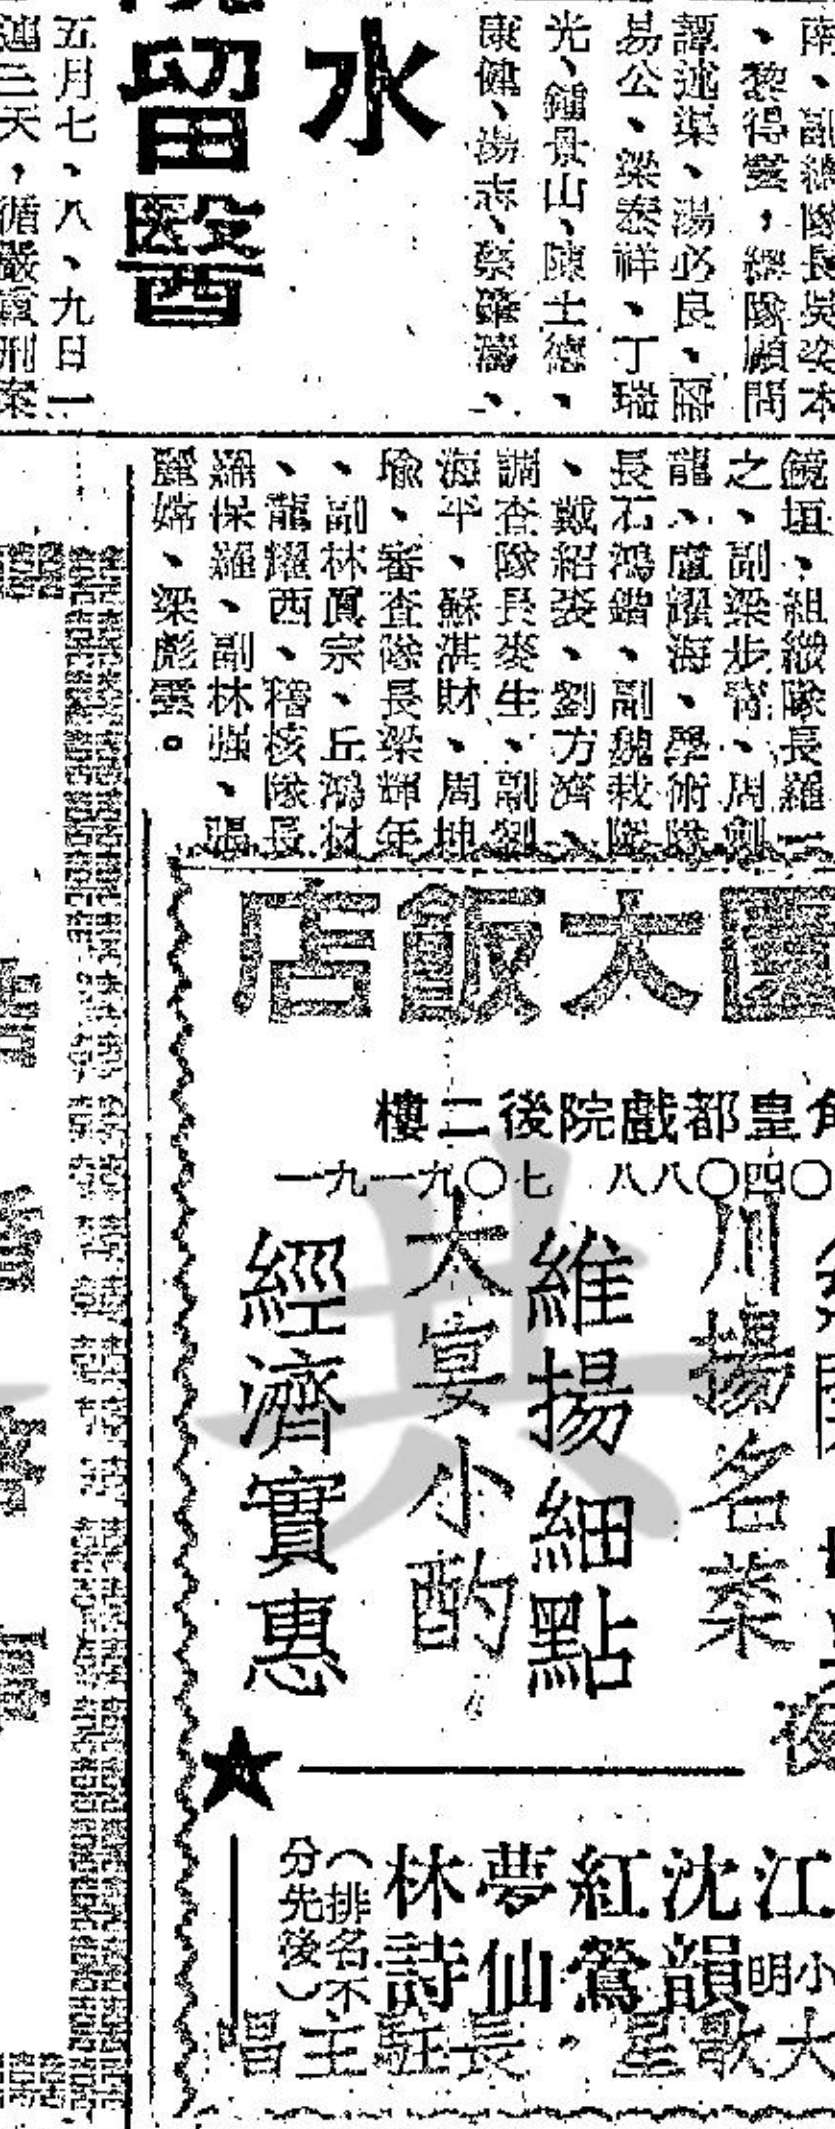 南、副總隊長吳姿本
、黎得雲，總隊顧問
譚述渠、湯必良、
易公、梁泰祥、丁瑞
光、鍾景山、陳士德、
康健、湯志、蔡
水
留醫
五月七、八、九日一
連三天，循嚴重刑案
鏡垣、組織隊長羅一
之、副梁步青、周劍
龍、盧耀海、學術隊
長石鴻鍇、副魏栽隆
、戴紹裘、劉方濟、
調查隊長麥生、副劉
海平、蘇湛財、周坤
瑜、審查隊長梁輝年
、副林眞宗、丘鴻材
、龍耀西、稽核隊長
羅保羅、副林強、張
麗嫦、梁彪雲。
園大飯店
角皇都戲院後二樓
〇四〇八八 七〇九一九一
川揚名菜
維揚細點
大宴小酌
經濟實惠
夜
江小明
沈韻
紅鶯
夢仙
林詩
（排名不
分先後）
大歌星。長駐主唱
共